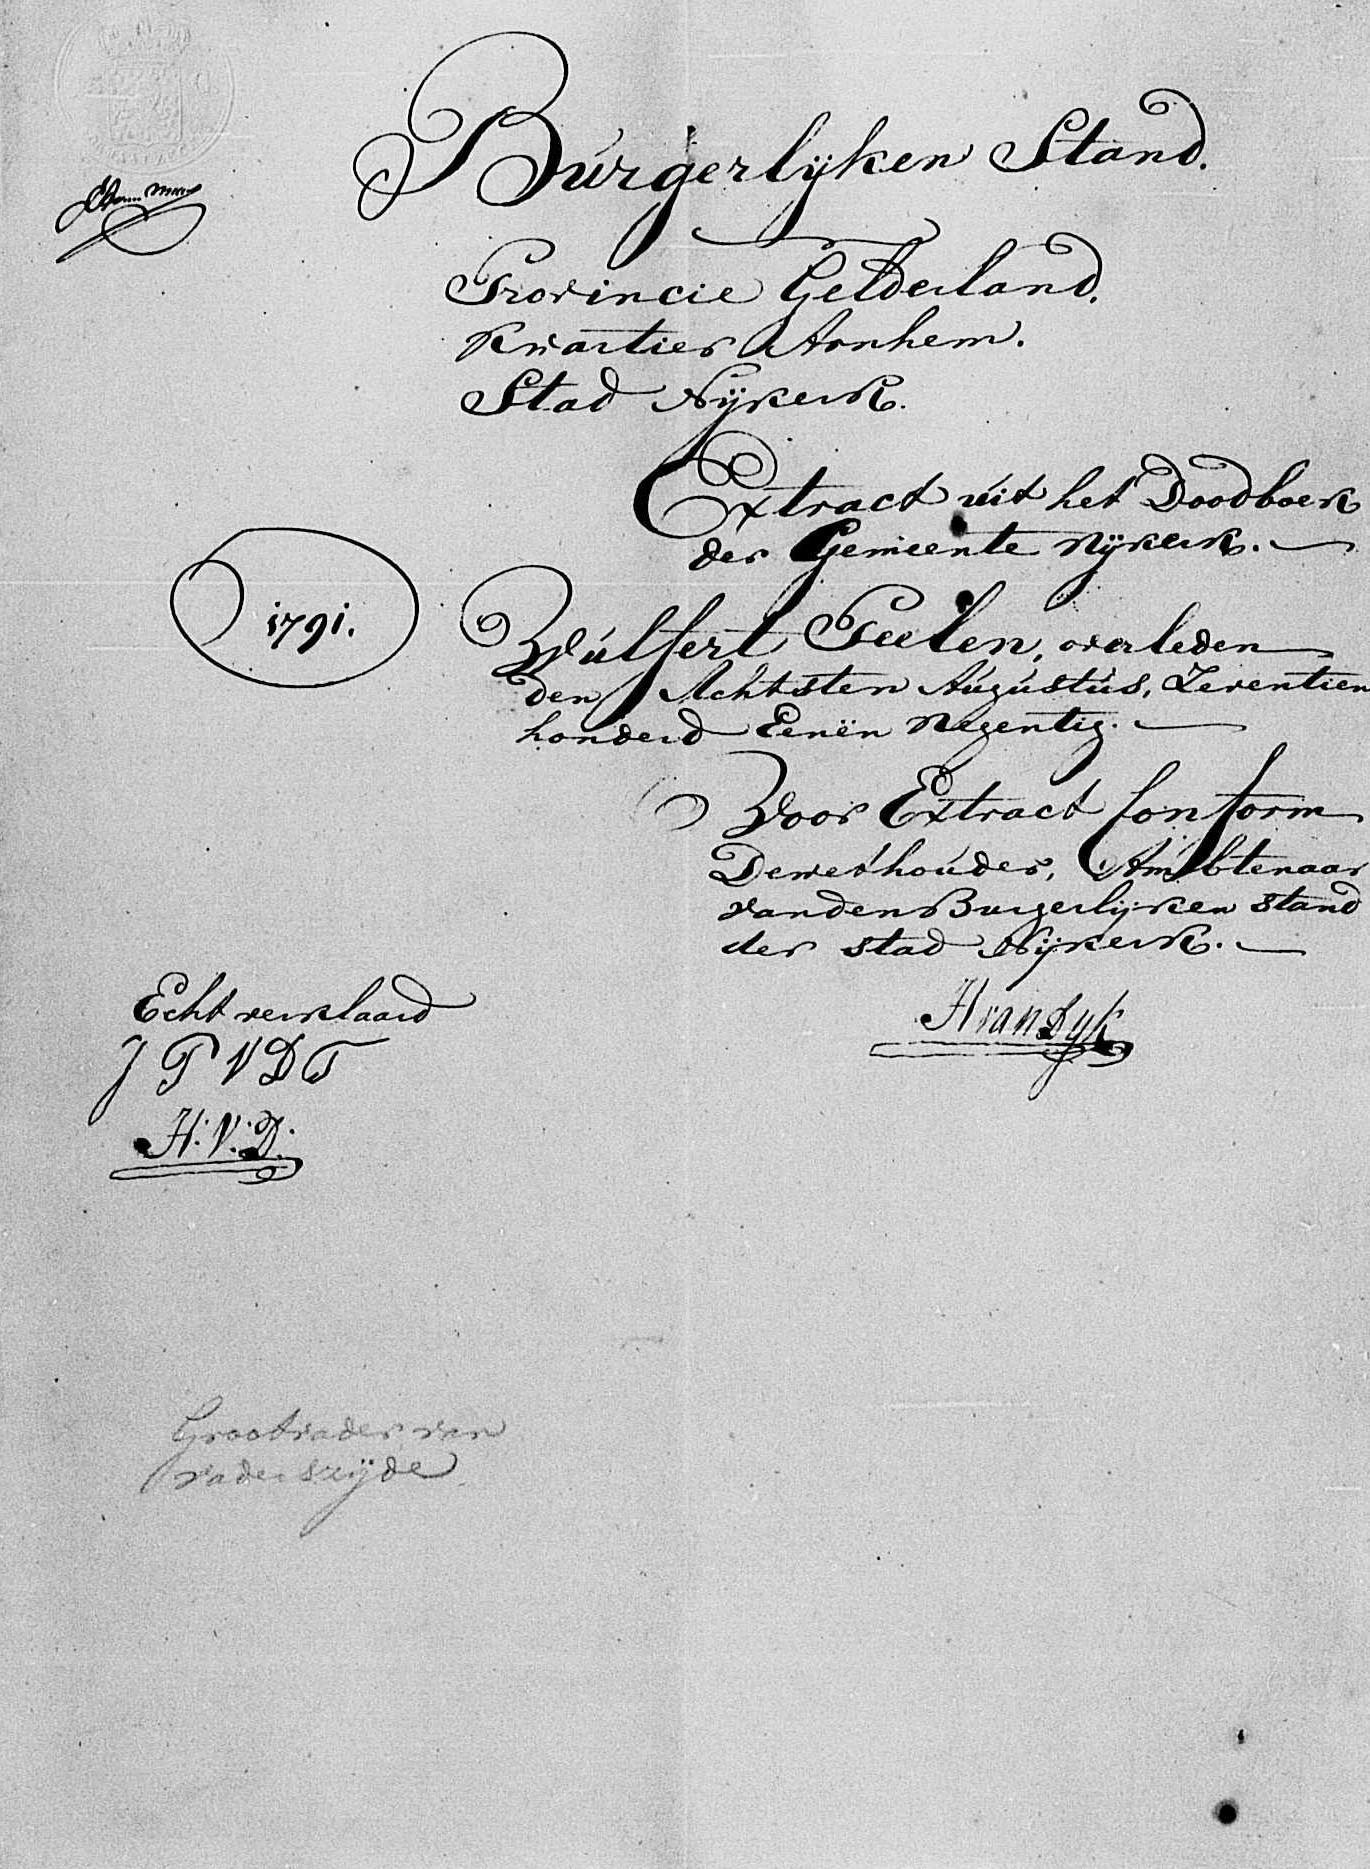 Burgerlijken Stand.
Provincie Gelderland.
Kwartier Arnhem.
Stad Nijkerk.
Extract uit het Doodboek
der Gemeente Nijkerk.
1791.
Wulfert Peelen, overleden
den Achtsten Augustus, Zeventien
honderd Eenën Negentig.
Voor Extract Conform
De wethouder, Ambtenaar
van den Burgerlijken Stand
der stad Nijkerk.
HvanDyk
Echt verklaard
J P V D T
H. V. D.
Grootvader van
vaderszijde